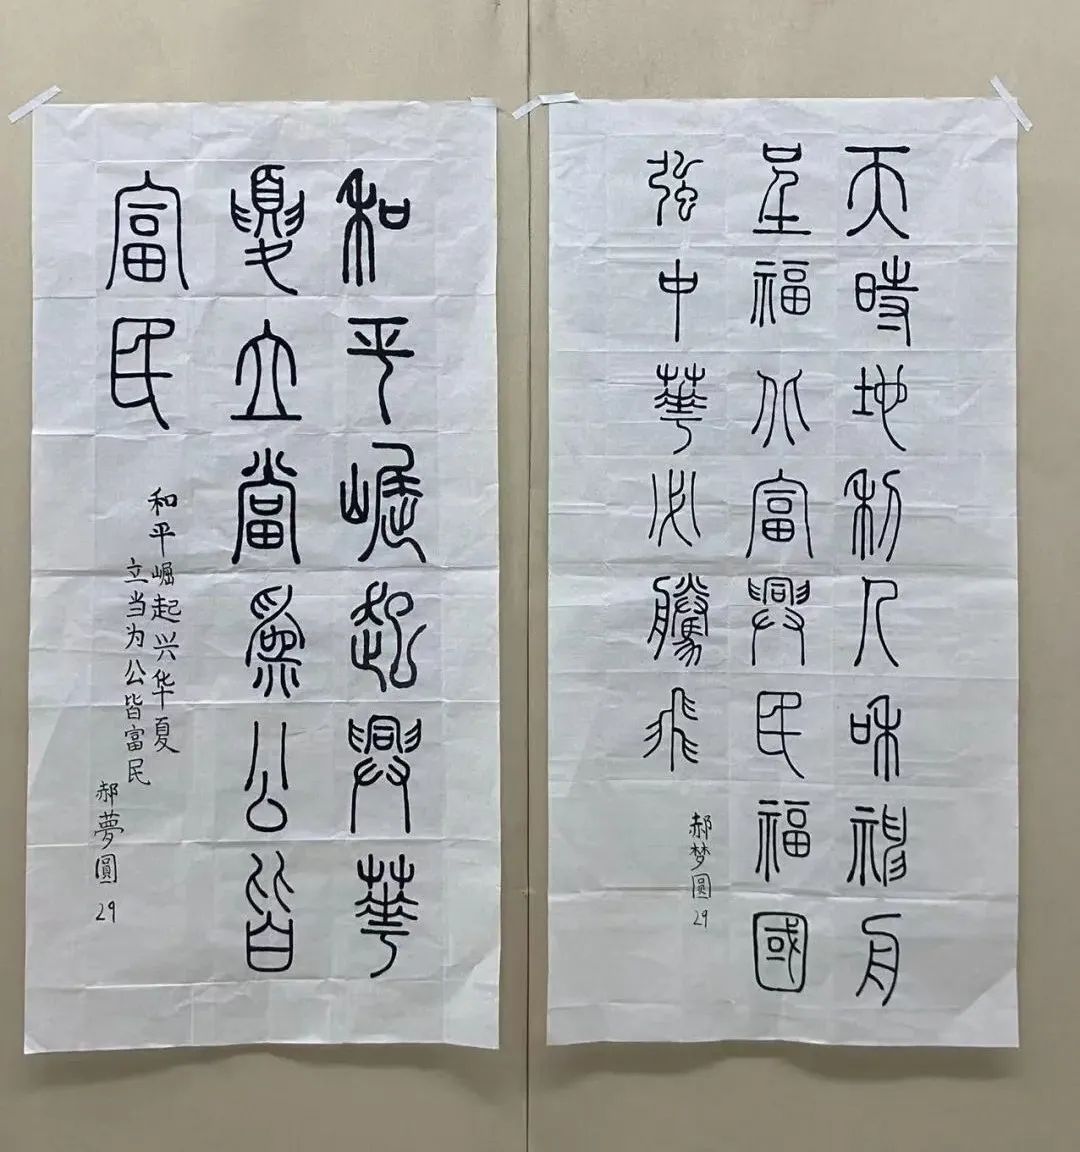 天時地利人和舟
呈福兆富興民福國
強中華必騰飛
郝梦圓 29
和平崛起興華
夏立當爲公皆
富民
和平崛起兴华夏
立当为公皆富民
郝夢圓 29